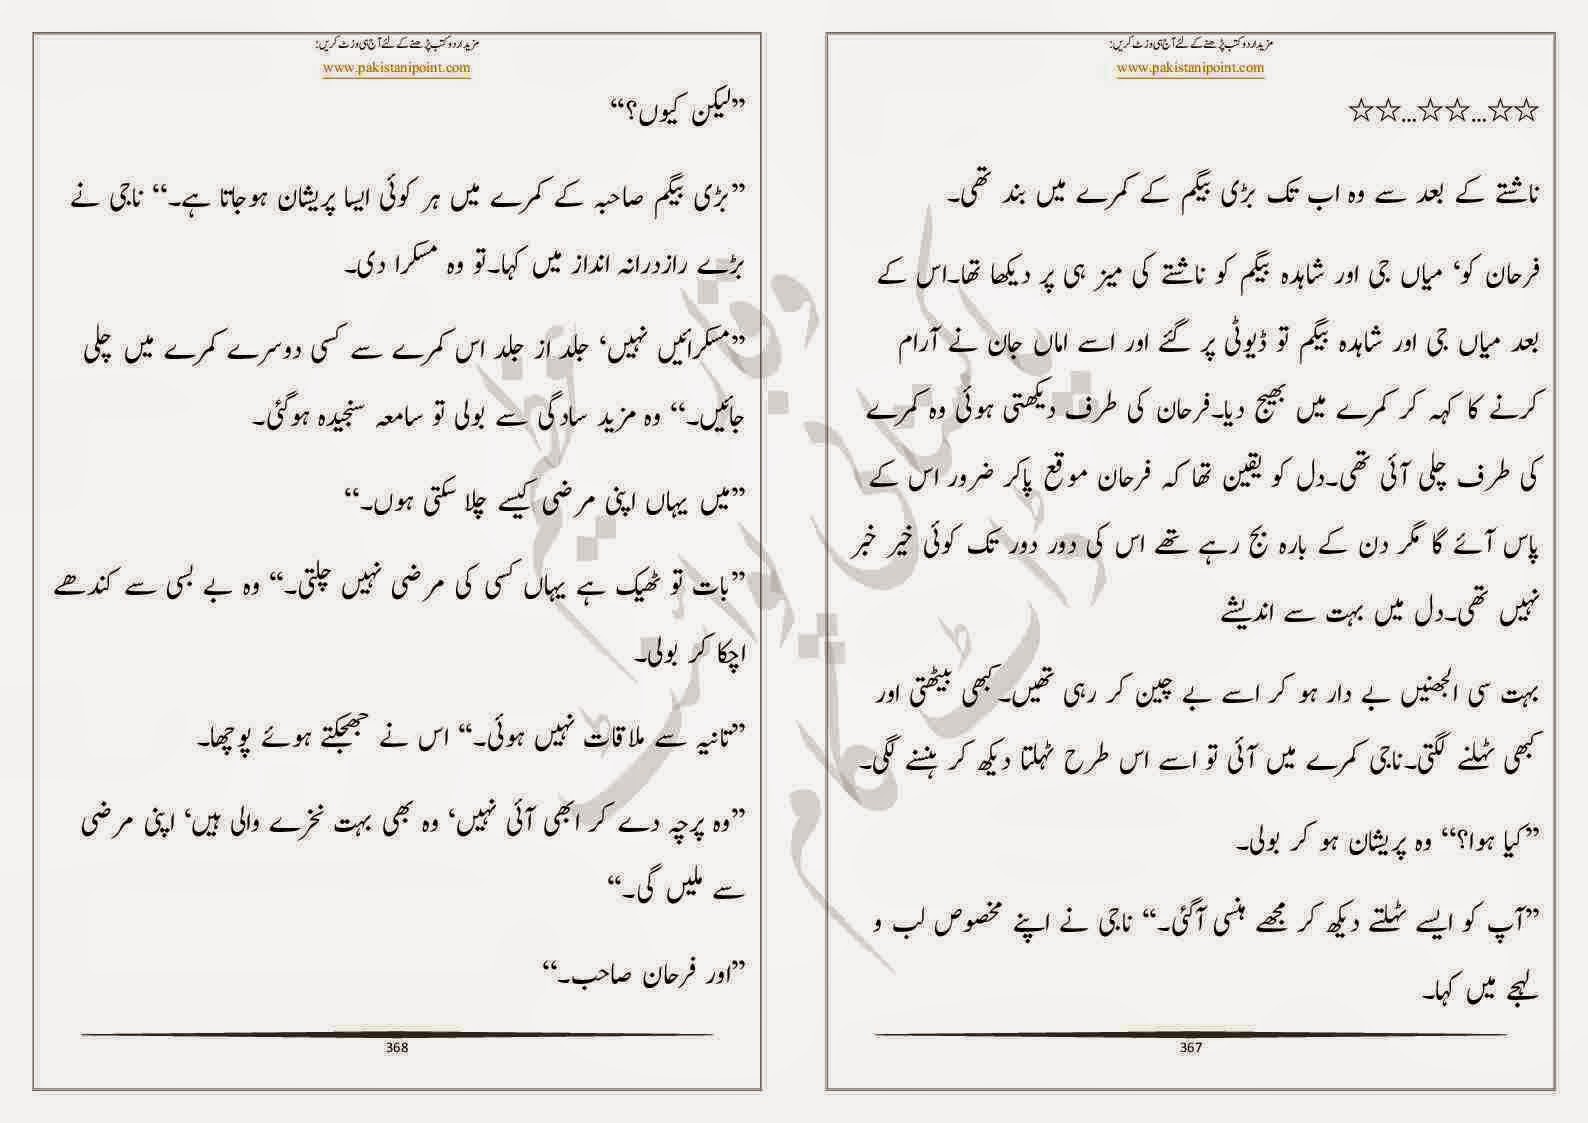 مزید اردو کتب پڑھنے کے لئے آج ہی وزٹ کریں:
www.pakistanipoint.com
☆☆...☆☆...☆☆
ناشتے کے بعد سے وہ اب تک بڑی بیگم کے کمرے میں بند تھی۔
فرحان کو‘ میاں جی اور شاہدہ بیگم کو ناشتے کی میز ہی پر دیکھا تھا۔اس کے
بعد میاں جی اور شاہدہ بیگم تو ڈیوٹی پر گئے اور اسے اماں جان نے آرام
کرنے کا کہہ کر کمرے میں بھیج دیا۔فرحان کی طرف دیکھتی ہوئی وہ کمرے
کی طرف چلی آئی تھی۔دل کو یقین تھا کہ فرحان موقع پاکر ضرور اس کے
پاس آئے گا مگر دن کے بارہ بج رہے تھے اس کی دور دور تک کوئی خیر خبر
نہیں تھی۔دل میں بہت سے اندیشے
بہت سی الجھنیں بے دار ہو کر اسے بے چین کر رہی تھیں۔کبھی بیٹھتی اور
کبھی ٹہلنے لگتی۔ناجی کمرے میں آئی تو اسے اس طرح ٹہلتا دیکھ کر ہنسنے لگی۔
”کیا ہوا؟“ وہ پریشان ہو کر بولی۔
”آپ کو ایسے ٹہلتے دیکھ کر مجھے ہنسی آگئی۔“ ناجی نے اپنے مخصوص لب و
لہجے میں کہا۔
367
مزید اردو کتب پڑھنے کے لئے آج ہی وزٹ کریں:
www.pakistanipoint.com
”لیکن کیوں؟“
”بڑی بیگم صاحبہ کے کمرے میں ہر کوئی ایسا پریشان ہوجاتا ہے۔“ ناجی نے
بڑے رازدرانہ انداز میں کہا۔تو وہ مسکرا دی۔
”مسکرائیں نہیں‘ جلد از جلد اس کمرے سے کسی دوسرے کمرے میں چلی
جائیں۔“ وہ مزید سادگی سے بولی تو سامعہ سنجیدہ ہوگئی۔
”میں یہاں اپنی مرضی کیسے چلا سکتی ہوں۔“
”بات تو ٹھیک ہے یہاں کسی کی مرضی نہیں چلتی۔“ وہ بے بسی سے کندھے
اچکا کر بولی۔
”تانیہ سے ملاقات نہیں ہوئی۔“ اس نے جھجکتے ہوئے پوچھا۔
”وہ پرچہ دے کر ابھی آئی نہیں‘ وہ بھی بہت نخرے والی ہیں‘ اپنی مرضی
سے ملیں گی۔“
”اور فرحان صاحب۔“
368
پاکستانی پوائنٹ ڈاٹ کام
وقار عظیم